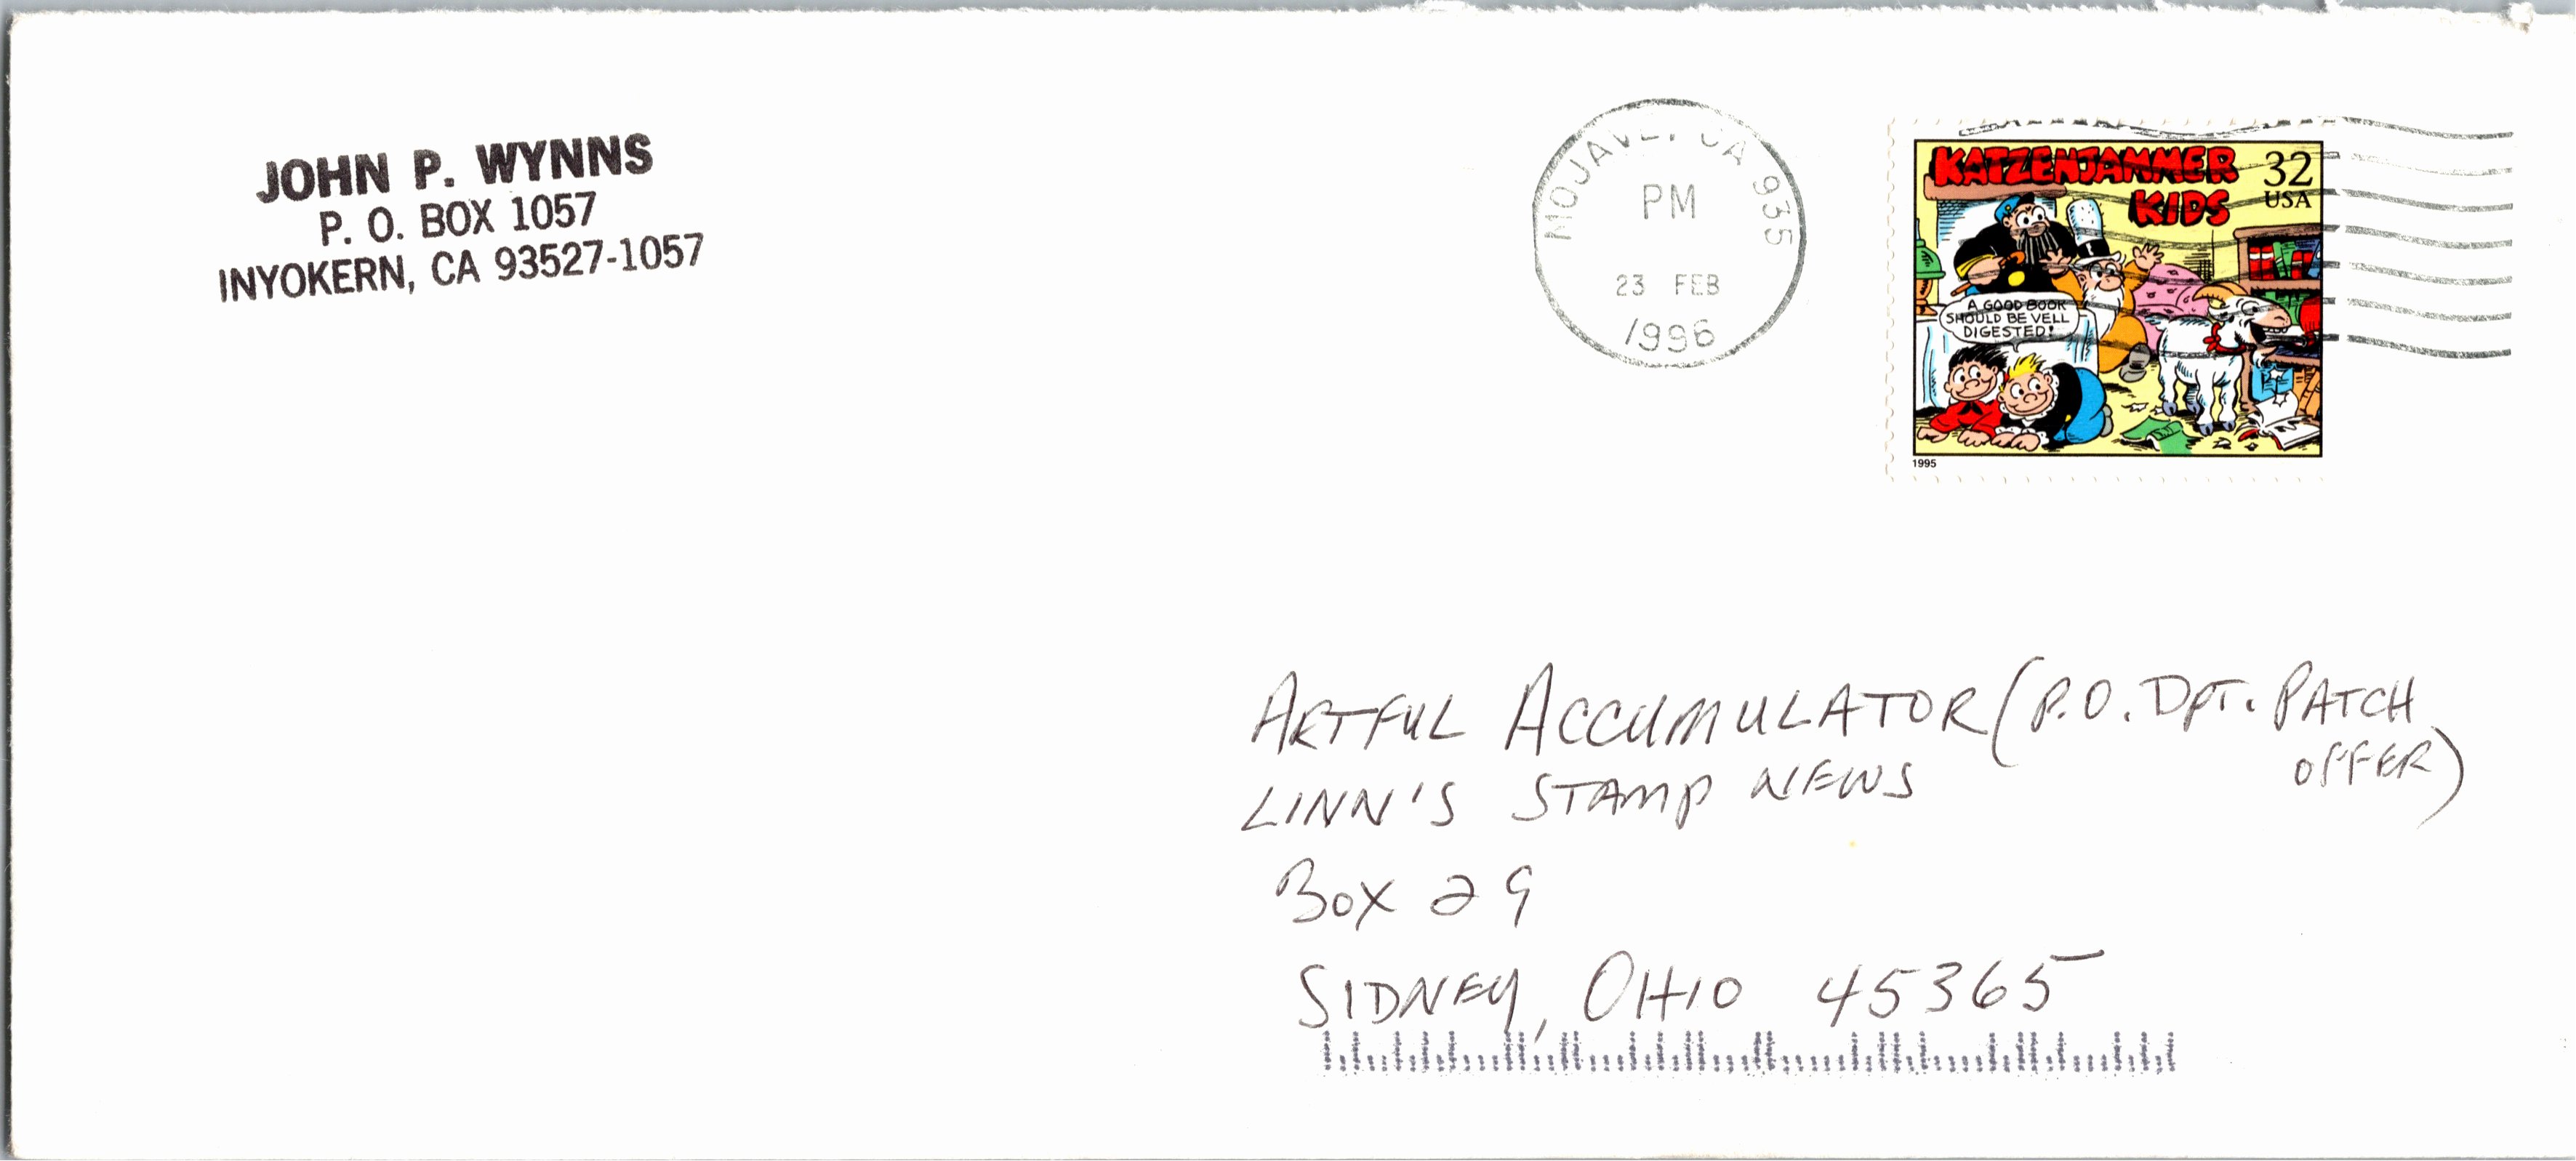 JOHN P. WYNNS
P. O. BOX 1057
INYOKERN, CA 93527-1057
MOJAVE, CA 935
PM
23 FEB
1996
KATZENJAMMER
KIDS
32
USA
A GOOD BOOK
SHOULD BE VELL
DIGESTED!
1995
ARTFUL ACCUMULATOR (P.O. DPT. PATCH
OFFER)
LINN'S STAMP NEWS
BOX 29
SIDNEY, OHIO 45365